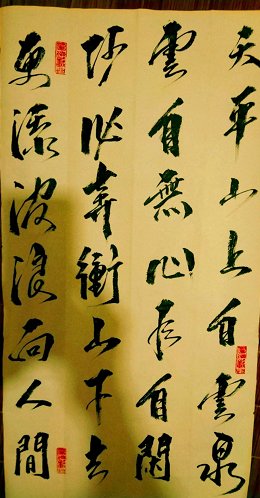 天平山上白雲泉
雲自無心水自閑
何必奔衝山下去
更添波浪向人間